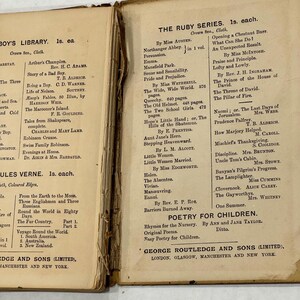 BOY'S LIBRARY. 1s. ea.
Crown 8vo., Cloth.
Arthur's Champion.
REV. H. C. ADAMS.
Story of a Bad Boy.
T. B. ALDRICH.
Being a Boy. C. D. WARNER.
Life of Nelson. SOUTHEY.
HARRISON WEIR.
The Mammoth's Island
Tales from Shakspeare.
CHARLES and MARY LAMB.
Robinson Crusoe.
Swiss Family Robinson.
Evenings at Home.
DR. AIKIN & MRS. BARBAULD.
JULES VERNE. 1s. ea.
From the Earth to the Moon.
Three Englishmen and Three
Russians.
Round the World in Eighty
Days.
The Fur Country. Part 1.
Do. Part 2.
Voyage Round the World.
1. South America.
2. Australia.
3. New Zealand.
AND SONS (LIMITED),
MANCHESTER AND NEW YORK.
THE RUBY SERIES. 1s. each.
Crown 8vo., Cloth.
By MISS AUSTEN.
Northanger Abbey.
Persuasion.
Emma.
Mansfield Park.
Sense and Sensibility.
Pride and Prejudice.
By MISS WETHERELL.
The Wide, Wide World. 372
pages.
Queechy. 440 pages.
The Old Helmet. 448 pages.
The Two School Girls 472
pages.
Hope's Little Hand; or, The
Hills of the Shatemuc.
By E. PRENTISS.
Aunt Jane's Hero.
Stepping Heavenward.
By L. M. ALCOTT.
Little Women.
Little Women Married.
By MISS EDGEWORTH.
Helen.
The Absentee.
Vivian.
Manoeuvring.
Ennui.
By REV. E. P. ROE.
Barriers Burned Away.
Opening a Chestnut Burr.
What Can She Do?
An Unexpected Result.
By MISS MCINTOSH.
Praise and Principle.
Lofty and Lowly.
By REV. J. H. INGRAHAM.
The Prince of the House of
David.
The Throne of David.
The Pillar of Fire.
Naomi; or, The Last Days of
Jerusalem. MRS. WEBB.
Prudence Palfrey.
T. B. ALDRICH.
How Marjory Helped.
M. CARROLL.
Mischief's Thanksgiving.
S. COOLIDGE.
Discipline. MRS. BRUNTON.
Uncle Tom's Cabin.
MRS. STOWE.
Bunyan's Pilgrim's Progress.
The Lamplighter.
MISS CUMMINS
Clovernook. ALICE CAREY.
The Gayworthys.
MRS. WHITNEY
One Summer.
POETRY FOR CHILDREN.
Rhymes for the Nursery. By ANN and JANE TAYLOR.
Original Poems. Ditto.
Easy Poetry for Children.
GEORGE ROUTLEDGE AND SONS (LIMITED),
LONDON, GLASGOW, MANCHESTER AND NEW YORK.